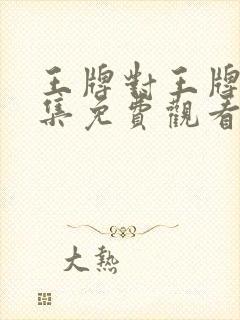 王牌對王牌
集免費觀看
大熱